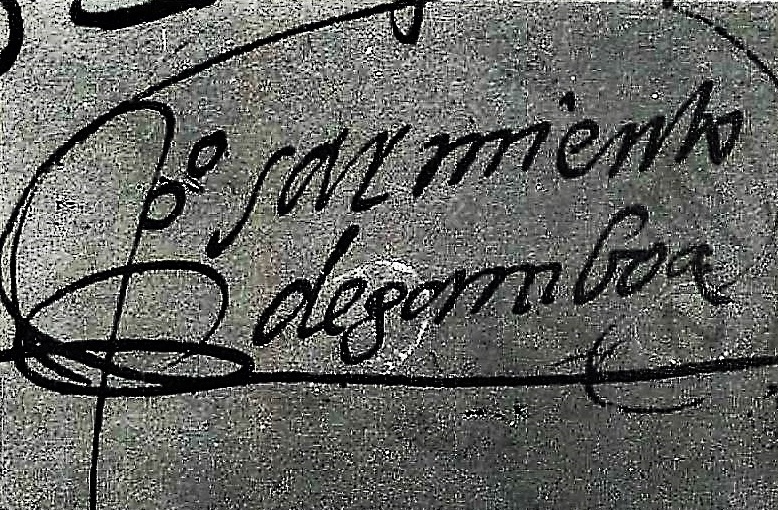 pº sarmiento
degamboa